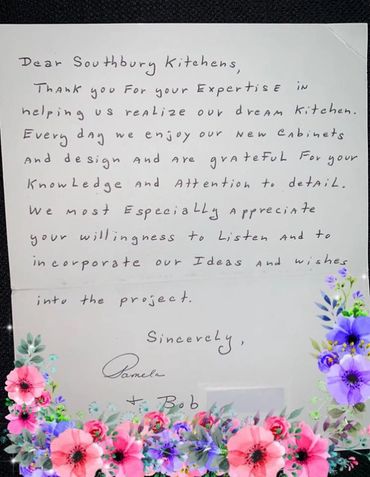 Dear Southbury Kitchens,
Thank you For your Expertise in
helping us realize our dream kitchen.
Every day we enjoy our new cabinets
and design and are grateful For your
Knowledge and Attention to detail.
We most Especially appreciate
your willingness to Listen and to
incorporate our Ideas and wishes
into the project.
Sincerely,
Pamela
+ Bob